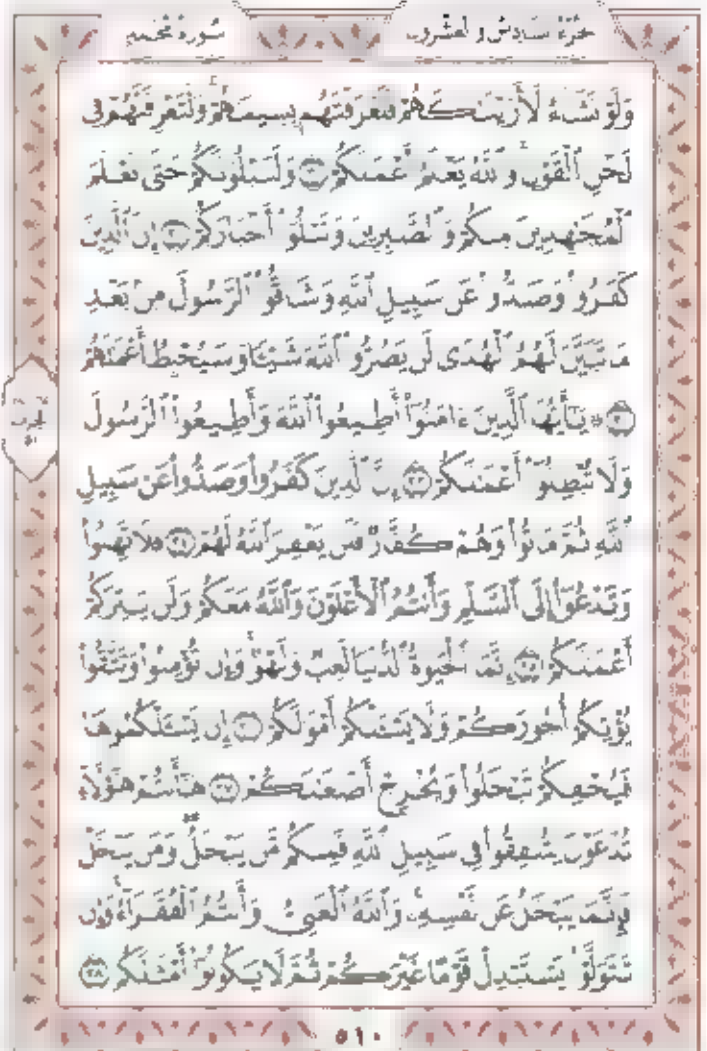 سورة محمد
الجزء السادس والعشرون
ولو نشاء لأرينكهم فلعرفتهم بسيمهم ولتعرفنهم في
لحن القول والله يعلم أعملكم ٣٠ ولنبلونكم حتى نعلم
المجهدين منكم والصبرين ونبلوا أخباركم ٣١ إن الذين
كفروا وصدوا عن سبيل الله وشاقوا الرسول من بعد
ما تبين لهم الهدى لن يضروا الله شيئا وسيحبط أعملهم
٣٢ ۞ يأيها الذين ءامنوا أطيعوا الله وأطيعوا الرسول
ولا تبطلوا أعملكم ٣٣ إن الذين كفروا وصدوا عن سبيل
الله ثم ماتوا وهم كفار فلن يغفر الله لهم ٣٤ فلا تهنوا
وتدعوا إلى السلم وأنتم الأعلون والله معكم ولن يتركم
أعملكم ٣٥ إنما الحيوة الدنيا لعب ولهو وإن تؤمنوا وتتقوا
يؤتكم أجوركم ولا يسئلكم أمولكم ٣٦ إن يسئلكموها
فيحفكم تبخلوا ويخرج أضغنكم ٣٧ هأنتم هؤلاء
تدعون لتنفقوا في سبيل الله فمنكم من يبخل ومن يبخل
فإنما يبخل عن نفسه والله الغني وأنتم الفقراء وإن
تتولوا يستبدل قوما غيركم ثم لا يكونوا أمثلكم ٣٨
٥١٠